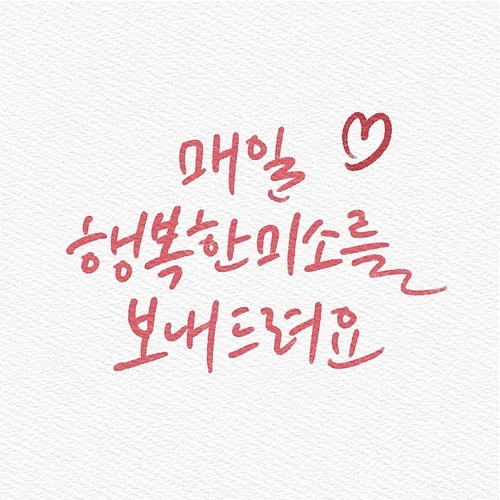 매일
행복한 미소를
보내드려요